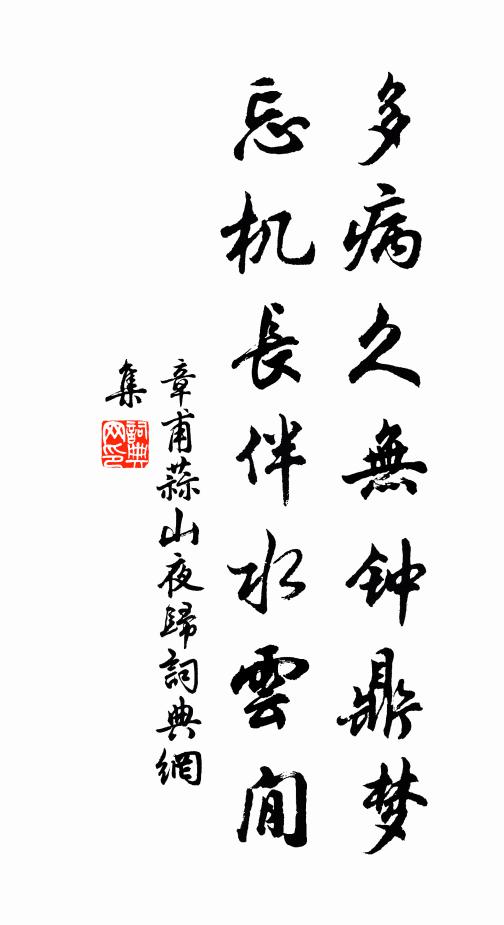 多病久無钟鼎梦
忘机長伴水雲閒
章甫蒜山夜歸詞典網
集
詞典网印